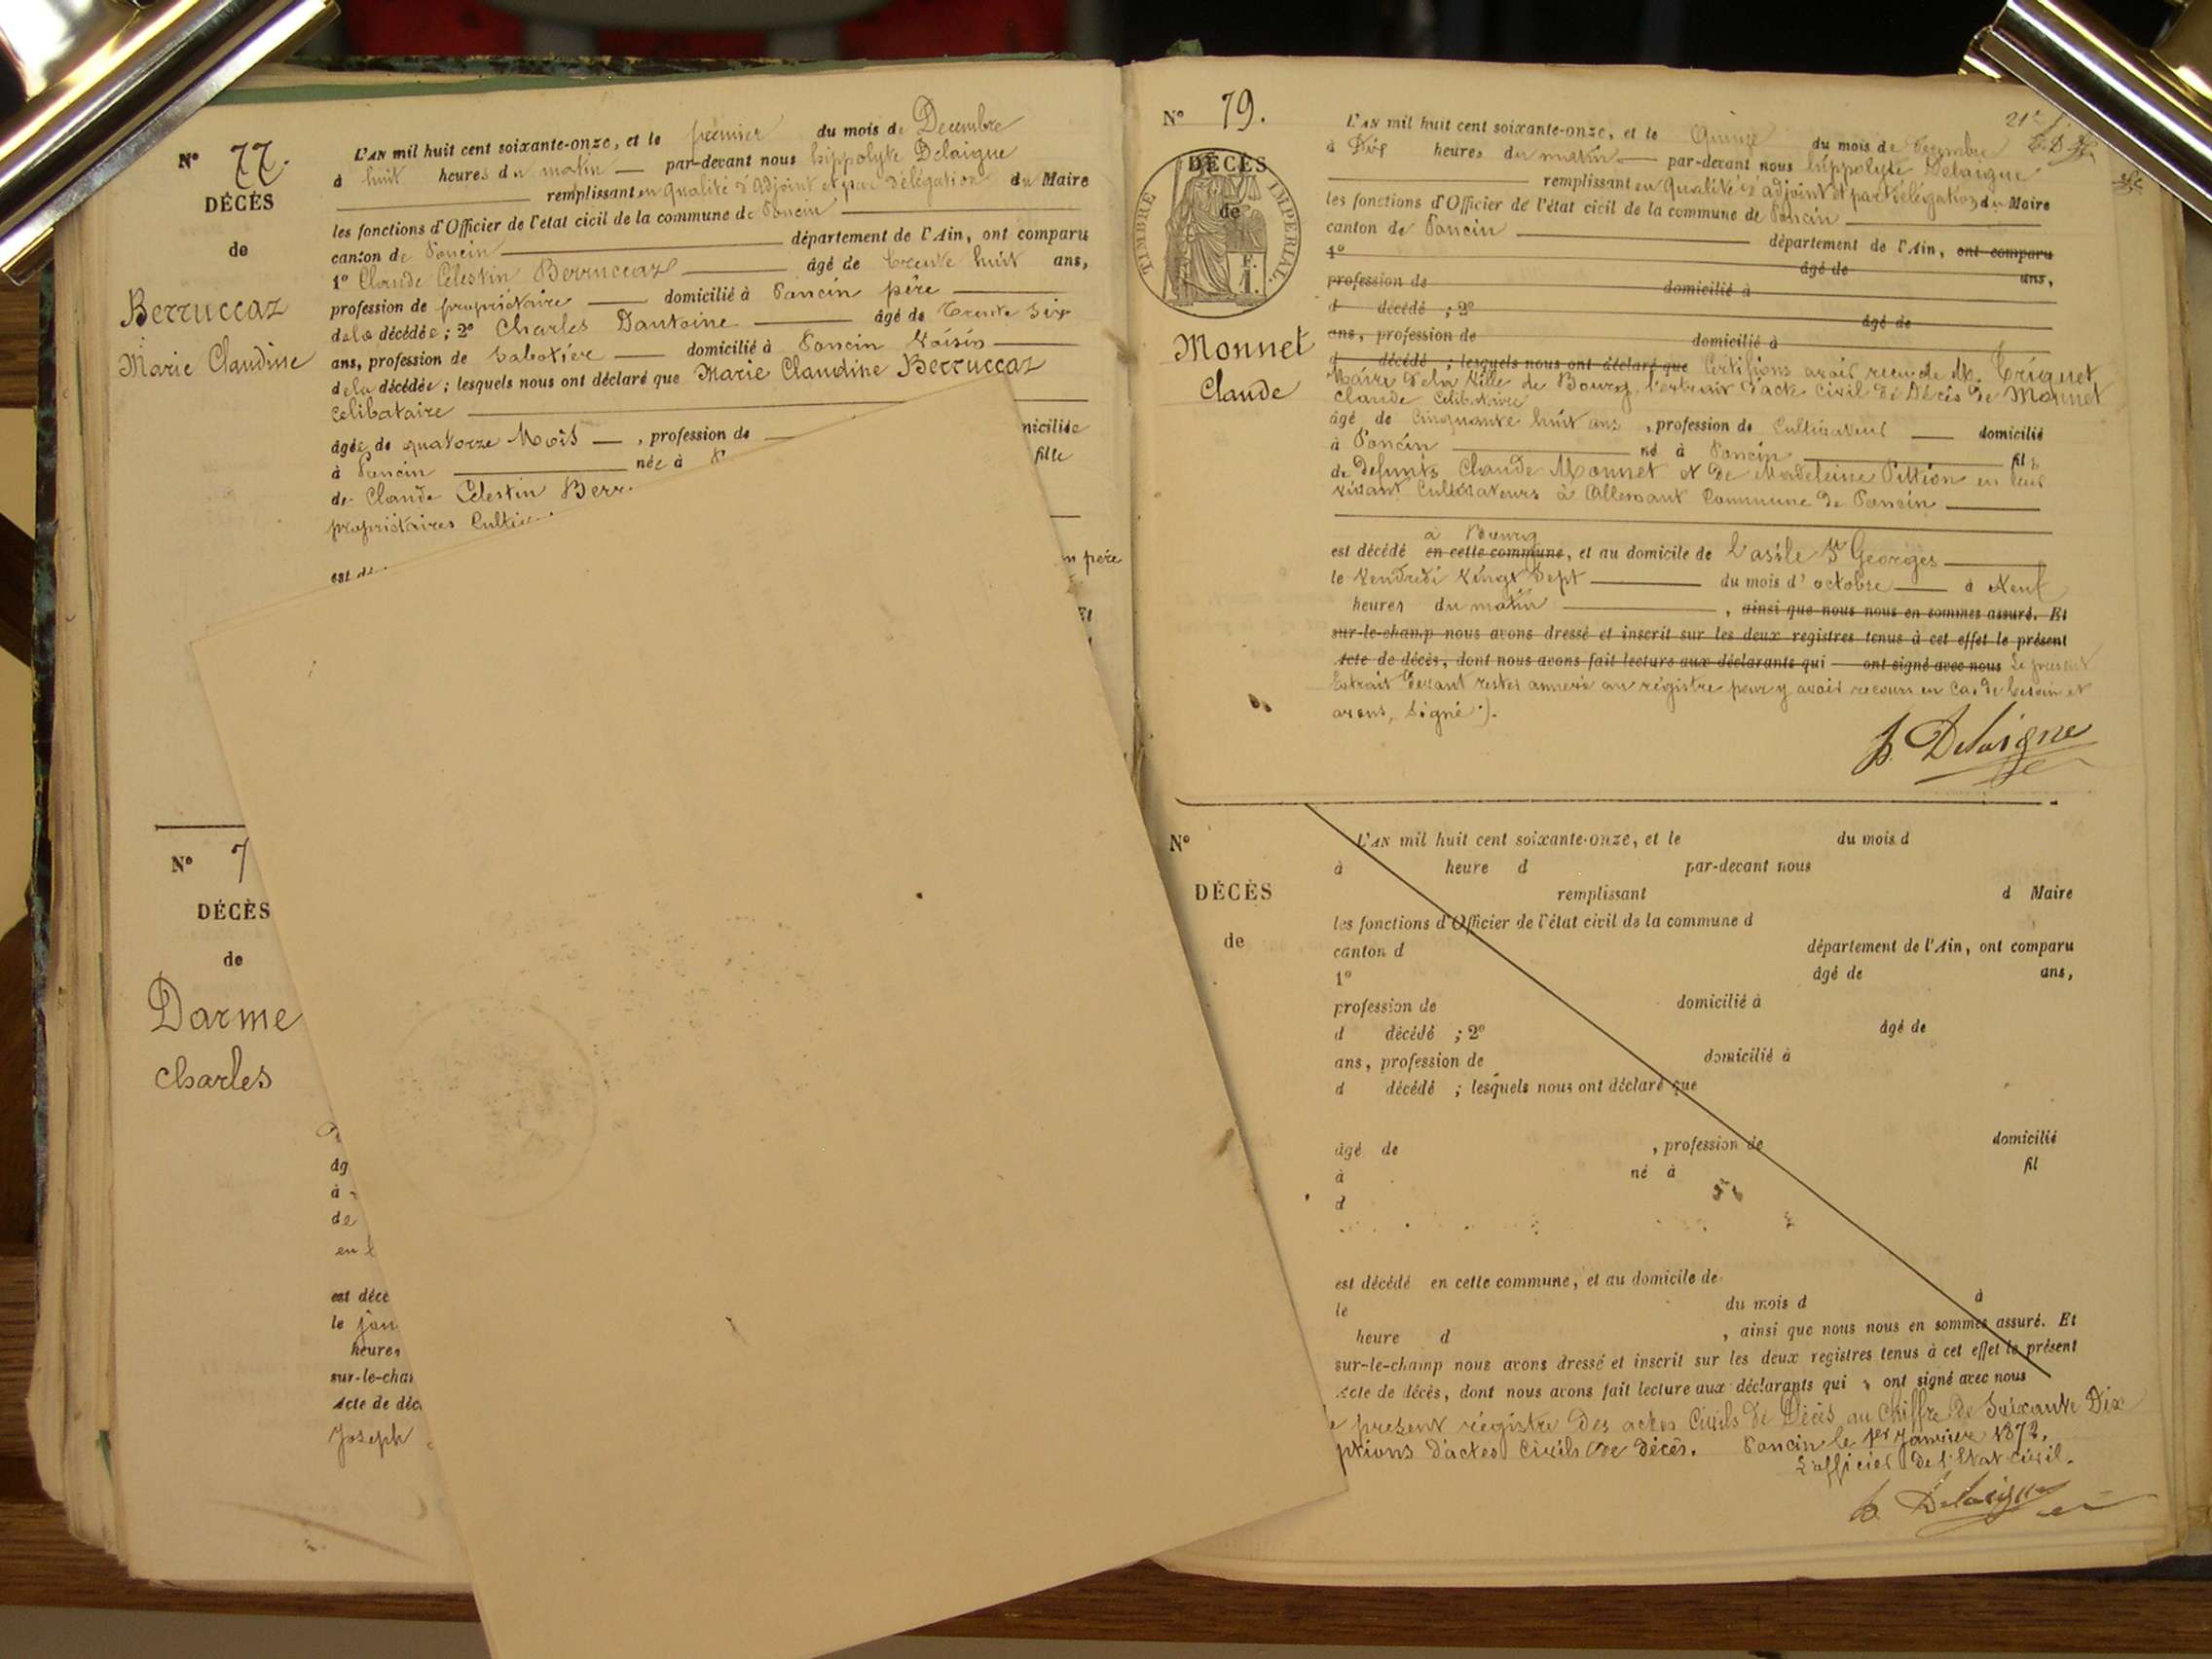 N° 77.
DÉCÈS
de
Berruccaz
Marie Claudine
L'AN mil huit cent soixante-onze, et le premier du mois de Decembre
à huit heures du matin par-devant nous hippolyte Delaigue
remplissant en qualité d'adjoint et par délégation du Maire
les fonctions d'Officier de l'état civil de la commune de Poncin
canton de Poncin département de l'Ain, ont comparu
1° Claude Célestin Berruccaz âgé de trente huit ans,
profession de propriétaire domicilié à Poncin père
de la décédée ; 2° Charles Dantoine âgé de trente six
ans, profession de Sabotier domicilié à Poncin Voisin
de la décédée ; lesquels nous ont déclaré que Marie Claudine Berruccaz
Célibataire
âgée de quatorze Mois , profession de
domiciliée
à Poncin née à P
fille
de Claude Célestin Berr
propriétaires Cultiv
est dé
n père
Et
N° 7
DÉCÈS
de
Darme
Charles
âg
à
de
en l
est décé
le jou
heures
sur-le-cha
Acte de déc
Joseph
N° 79.
DÉCÈS
de
TIMBRE IMPÉRIAL
Monnet
Claude
21e
L'AN mil huit cent soixante-onze, et le Quinze du mois de Decembre
à Dix heures du matin par-devant nous hippolyte Delaigue
remplissant en qualité d'adjoint et par délégation du Maire
les fonctions d'Officier de l'état civil de la commune de Poncin
canton de Poncin département de l'Ain, ont comparu
1° âgé de ans,
profession de domicilié à
d décédé ; 2° âgé de
ans, profession de domicilié à
d décédé ; lesquels nous ont déclaré que Certifions avoir reçu de M. Triquet
Maire de la Ville de Bourg, l'extrait d'acte Civil de Décès de Monnet
Claude Célibataire
âgé de Cinquante huit ans , profession de Cultivateur domicilié
à Poncin né à Poncin fils
de defunts Claude Monnet et de Madeleine Pittion en leur
vivant Cultivateurs à Allemant Commune de Poncin
à Bourg
est décédé en cette commune, et au domicile de l'asile St Georges
le Vendredi Vingt Sept du mois d'octobre à Neuf
heures du matin , ainsi que nous nous en sommes assuré. Et
sur-le-champ nous avons dressé et inscrit sur les deux registres tenus à cet effet le présent
Acte de décès, dont nous avons fait lecture aux déclarants qui ont signé avec nous Le présent
Extrait devant rester annexé au régistre pour y avoir recours en Cas de besoin et
avons, Signé.
h. Delaigue
N°
DÉCÈS
de
L'AN mil huit cent soixante-onze, et le du mois d
à heure d par-devant nous
remplissant d Maire
les fonctions d'Officier de l'état civil de la commune d
canton d département de l'Ain, ont comparu
1° âgé de ans,
profession de domicilié à
d décédé ; 2° âgé de
ans, profession de domicilié à
d décédé ; lesquels nous ont déclaré que
âgé de , profession de domicilié
à né à fil
d
est décédé en cette commune, et au domicile de
le du mois d à
heure d , ainsi que nous nous en sommes assuré. Et
sur-le-champ nous avons dressé et inscrit sur les deux registres tenus à cet effet le présent
Acte de décès, dont nous avons fait lecture aux déclarants qui ont signé avec nous
e present régistre des actes Civils de Décès au Chiffre de Soixante Dix
ptions d'actes Civils de décès. Poncin le 1er Janvier 1872.
L'officier de l'Etat civil.
h. Delaigue